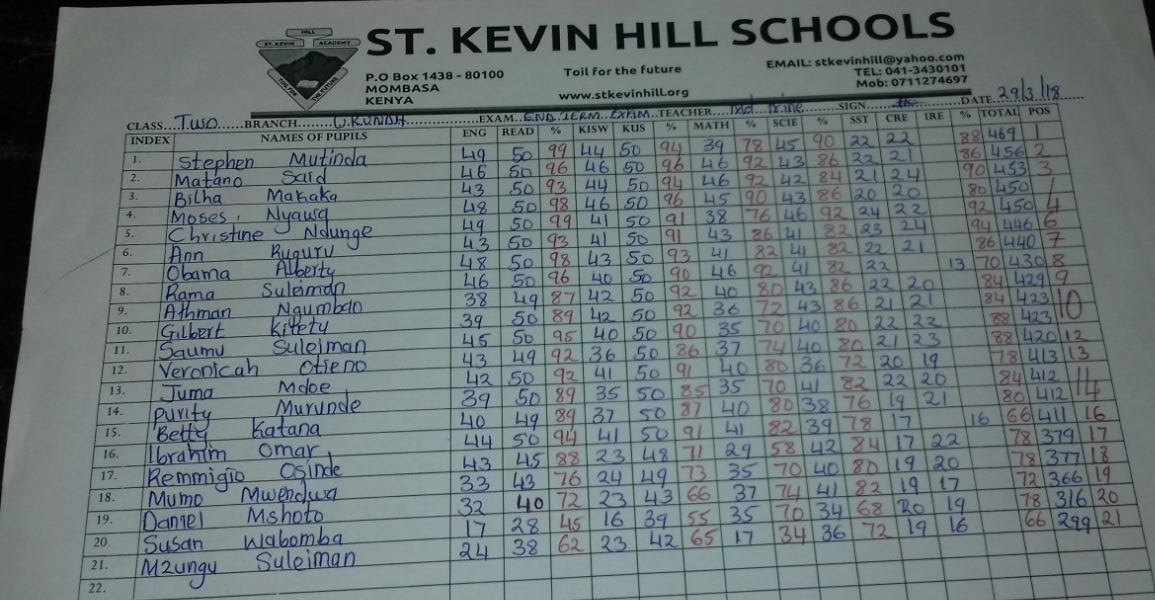 HILL
ST. KEVIN ACADEMY
TOIL FOR THE FUTURE
ST. KEVIN HILL SCHOOLS
P.O Box 1438 - 80100
MOMBASA
KENYA
Toil for the future
www.stkevinhill.org
EMAIL: stkevinhill@yahoo.com
TEL: 041-3430101
Mob: 0711274697
CLASS Two BRANCH UKUNDA EXAM END TERM EXAM TEACHER SIGN DATE 29/3/18
INDEX NAMES OF PUPILS ENG READ % KISW KUS % MATH % SCIE % SST CRE IRE % TOTAL POS
1. Stephen Mutinda 49 50 99 44 50 94 39 78 45 90 22 22 88 469 1
2. Matano Said 46 50 96 46 50 96 46 92 43 86 22 21 86 456 2
3. Bilha Makaka 43 50 93 44 50 94 46 92 42 84 21 24 90 453 3
4. Moses Nyawa 48 50 98 46 50 96 45 90 43 86 20 20 80 450
5. Christine Ndunge 49 50 99 41 50 91 38 76 46 92 24 22 92 450 4
6. Ann Ruguru 43 50 93 41 50 91 43 86 41 82 23 24 94 446 6
7. Obama Alberty 48 50 98 43 50 93 41 82 41 82 22 21 86 440 7
8. Rama Suleiman 46 50 96 40 50 90 46 92 41 82 22 13 70 430 8
9. Athman Ngumbao 38 49 87 42 50 92 40 80 43 86 22 20 84 429 9
10. Gilbert Kitety 39 50 89 42 50 92 36 72 43 86 21 21 84 423 10
11. Saumu Suleiman 45 50 95 40 50 90 35 70 40 80 22 22 88 423
12. Veronicah Otieno 43 49 92 36 50 86 37 74 40 80 21 23 88 420 12
13. Juma Mdoe 42 50 92 41 50 91 40 80 36 72 20 19 78 413 13
14. Purity Murunde 39 50 89 35 50 85 35 70 41 82 22 20 84 412 14
15. Betty Katana 40 49 89 37 50 87 40 80 38 76 19 21 80 412
16. Ibrahim Omar 44 50 94 41 50 91 41 82 39 78 17 16 66 411 16
17. Remmigio Osinde 43 45 88 23 48 71 29 58 42 84 17 22 78 379 17
18. Mumo Mwendwa 33 43 76 24 49 73 35 70 40 80 19 20 78 377 18
19. Daniel Mshoto 32 40 72 23 43 66 37 74 41 82 19 17 72 366 19
20. Susan Wabomba 17 28 45 16 39 55 35 70 34 68 20 19 78 316 20
21. Mzungu Suleiman 24 38 62 23 42 65 17 34 36 72 19 16 66 299 21
22.